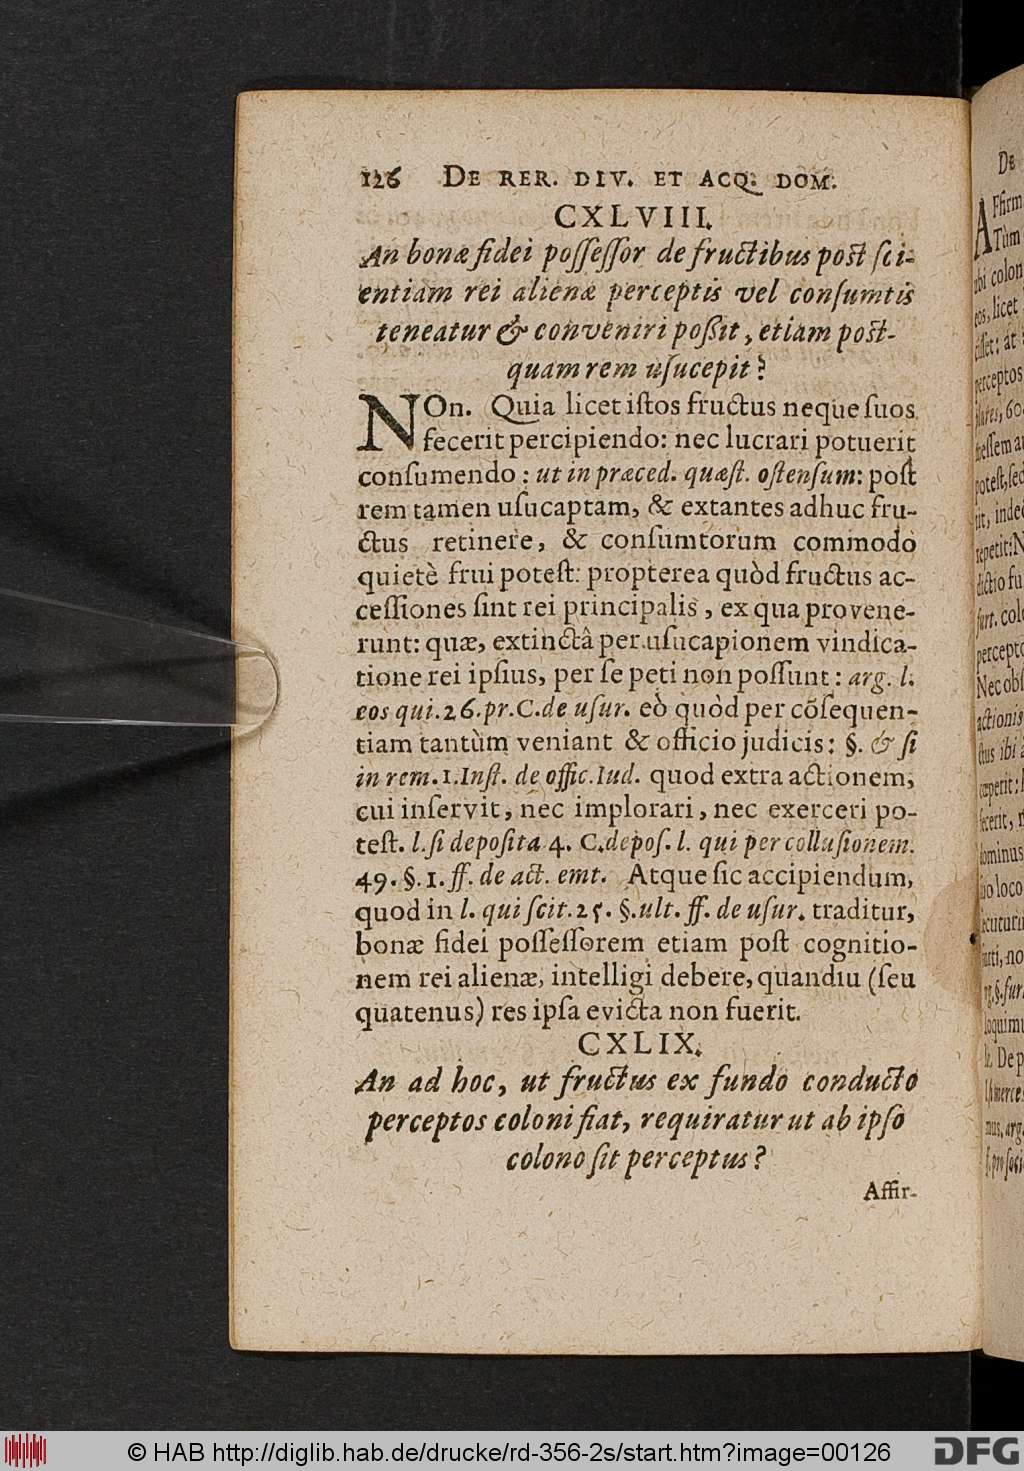 126 DE RER. DIV. ET ACQ. DOM.
CXLVIII.
An bonæ fidei poſſeſſor de fructibus poſt ſci-
entiam rei alienæ perceptis vel conſumtis
teneatur & conveniri poßit, etiam poſt-
quam rem uſucepit?
NOn. Quia licet iſtos fructus neque ſuos
fecerit percipiendo: nec lucrari potuerit
conſumendo: ut in præced. quæſt. oſtenſum: poſt
rem tamen uſucaptam, & extantes adhuc fru-
ctus retinere, & conſumtorum commodo
quietè frui poteſt: propterea quòd fructus ac-
ceſſiones ſint rei principalis, ex qua provene-
runt: quæ, extinctâ per uſucapionem vindica-
tione rei ipſius, per ſe peti non poſſunt: arg. l.
eos qui. 26. pr. C. de uſur. eò quòd per cõſequen-
tiam tantùm veniant & officio judicis: §. & ſi
in rem. 1. Inſt. de offic. Iud. quod extra actionem,
cui inſervit, nec implorari, nec exerceri po-
teſt. l. ſi depoſita 4. C. depoſ. l. qui per colluſionem.
49. §. 1. ff. de act. emt. Atque ſic accipiendum,
quod in l. qui ſcit. 25. §. ult. ff. de uſur. traditur,
bonæ fidei poſſeſſorem etiam poſt cognitio-
nem rei alienæ, intelligi debere, quandiu (ſeu
quatenus) res ipſa evicta non fuerit.
CXLIX.
An ad hoc, ut fructus ex fundo conducto
perceptos coloni fiat, requiratur ut ab ipſo
colono ſit perceptus?
Affir-
© HAB http://diglib.hab.de/drucke/rd-356-2s/start.htm?image=00126
DFG